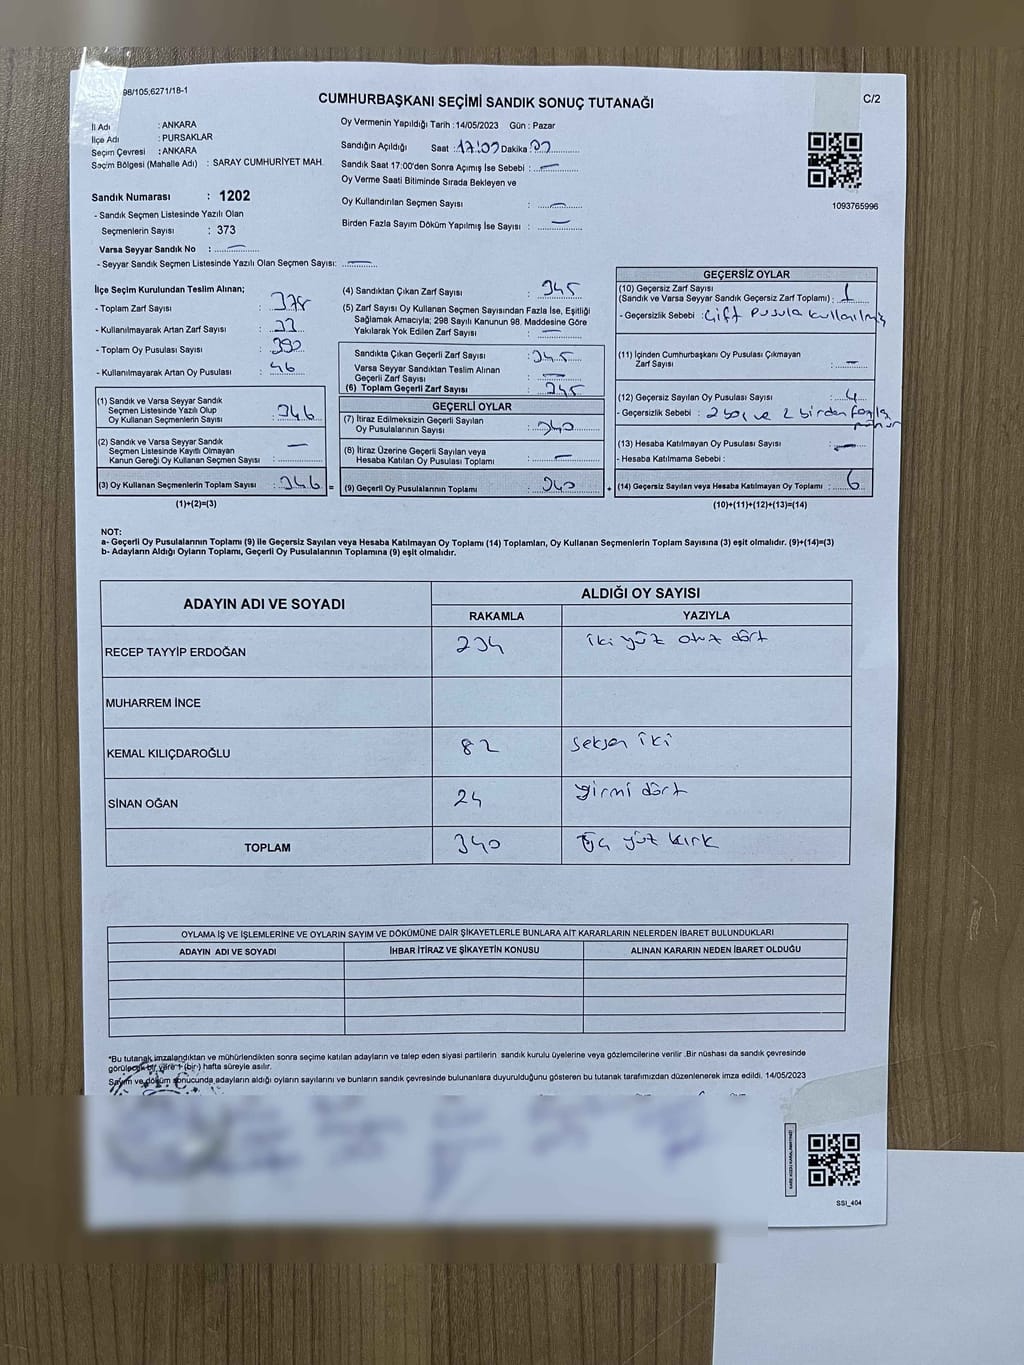 98/105;6271/18-1
C/2
CUMHURBAŞKANI SEÇİMİ SANDIK SONUÇ TUTANAĞI
İl Adı : ANKARA
İlçe Adı : PURSAKLAR
Seçim Çevresi : ANKARA
Seçim Bölgesi (Mahalle Adı) : SARAY CUMHURİYET MAH.
Sandık Numarası : 1202
- Sandık Seçmen Listesinde Yazılı Olan
Seçmenlerin Sayısı : 373
Varsa Seyyar Sandık No : —
- Seyyar Sandık Seçmen Listesinde Yazılı Olan Seçmen Sayısı: —
Oy Vermenin Yapıldığı Tarih :14/05/2023 Gün : Pazar
Sandığın Açıldığı Saat : Dakika :
Sandık Saat 17:00'den Sonra Açımış İse Sebebi : —
Oy Verme Saati Bitiminde Sırada Bekleyen ve
Oy Kullandırılan Seçmen Sayısı : —
Birden Fazla Sayım Döküm Yapılmış İse Sayısı : —
1093765996
İlçe Seçim Kurulundan Teslim Alınan;
- Toplam Zarf Sayısı :
- Kullanılmayarak Artan Zarf Sayısı :
- Toplam Oy Pusulası Sayısı : 390
- Kullanılmayarak Artan Oy Pusulası : 46
(1) Sandık ve Varsa Seyyar Sandık
Seçmen Listesinde Yazılı Olup
Oy Kullanan Seçmenlerin Sayısı : 346
(2) Sandık ve Varsa Seyyar Sandık
Seçmen Listesinde Kayıtlı Olmayan
Kanun Gereği Oy Kullanan Seçmen Sayısı : —
(3) Oy Kullanan Seçmenlerin Toplam Sayısı : 346 =
(1)+(2)=(3)
(4) Sandıktan Çıkan Zarf Sayısı : 345
(5) Zarf Sayısı Oy Kullanan Seçmen Sayısından Fazla İse, Eşitliği
Sağlamak Amacıyla; 298 Sayılı Kanunun 98. Maddesine Göre
Yakılarak Yok Edilen Zarf Sayısı : —
Sandıkta Çıkan Geçerli Zarf Sayısı : 345
Varsa Seyyar Sandıktan Teslim Alınan
Geçerli Zarf Sayısı : —
(6) Toplam Geçerli Zarf Sayısı : 345
GEÇERLİ OYLAR
(7) İtiraz Edilmeksizin Geçerli Sayılan
Oy Pusulalarının Sayısı : 340
(8) İtiraz Üzerine Geçerli Sayılan veya
Hesaba Katılan Oy Pusulası Toplamı : —
(9) Geçerli Oy Pusulalarının Toplamı : 340 +
GEÇERSİZ OYLAR
(10) Geçersiz Zarf Sayısı
(Sandık ve Varsa Seyyar Sandık Geçersiz Zarf Toplamı) : 1
- Geçersizlik Sebebi : Çift pusula kullanılmış
(11) İçinden Cumhurbaşkanı Oy Pusulası Çıkmayan
Zarf Sayısı : —
(12) Geçersiz Sayılan Oy Pusulası Sayısı : 4
- Geçersizlik Sebebi : 2 boş ve 2 birden fazla
mühür
(13) Hesaba Katılmayan Oy Pusulası Sayısı : —
- Hesaba Katılmama Sebebi :
(14) Geçersiz Sayılan veya Hesaba Katılmayan Oy Toplamı : 6
(10)+(11)+(12)+(13)=(14)
NOT:
a- Geçerli Oy Pusulalarının Toplamı (9) ile Geçersiz Sayılan veya Hesaba Katılmayan Oy Toplamı (14) Toplamları, Oy Kullanan Seçmenlerin Toplam Sayısına (3) eşit olmalıdır. (9)+(14)=(3)
b- Adayların Aldığı Oyların Toplamı, Geçerli Oy Pusulalarının Toplamına (9) eşit olmalıdır.
ADAYIN ADI VE SOYADI
ALDIĞI OY SAYISI
RAKAMLA YAZIYLA
RECEP TAYYİP ERDOĞAN 234 iki yüz otuz dört
MUHARREM İNCE
KEMAL KILIÇDAROĞLU 82 seksen iki
SİNAN OĞAN 24 yirmi dört
TOPLAM 340 Üç yüz kırk
OYLAMA İŞ VE İŞLEMLERİNE VE OYLARIN SAYIM VE DÖKÜMÜNE DAİR ŞİKAYETLERLE BUNLARA AİT KARARLARIN NELERDEN İBARET BULUNDUKLARI
ADAYIN ADI VE SOYADI İHBAR İTİRAZ VE ŞİKAYETİN KONUSU ALINAN KARARIN NEDEN İBARET OLDUĞU
*Bu tutanak imzalandıktan ve mühürlendikten sonra seçime katılan adayların ve talep eden siyasi partilerin sandık kurulu üyelerine veya gözlemcilerine verilir .Bir nüshası da sandık çevresinde
görülecek bir yere 1 (bir) hafta süreyle asılır.
Sayım ve döküm sonucunda adayların aldığı oyların sayılarını ve bunların sandık çevresinde bulunanlara duyurulduğunu gösteren bu tutanak tarafımızdan düzenlenerek imza edildi. 14/05/2023
T.C.
SSI_404